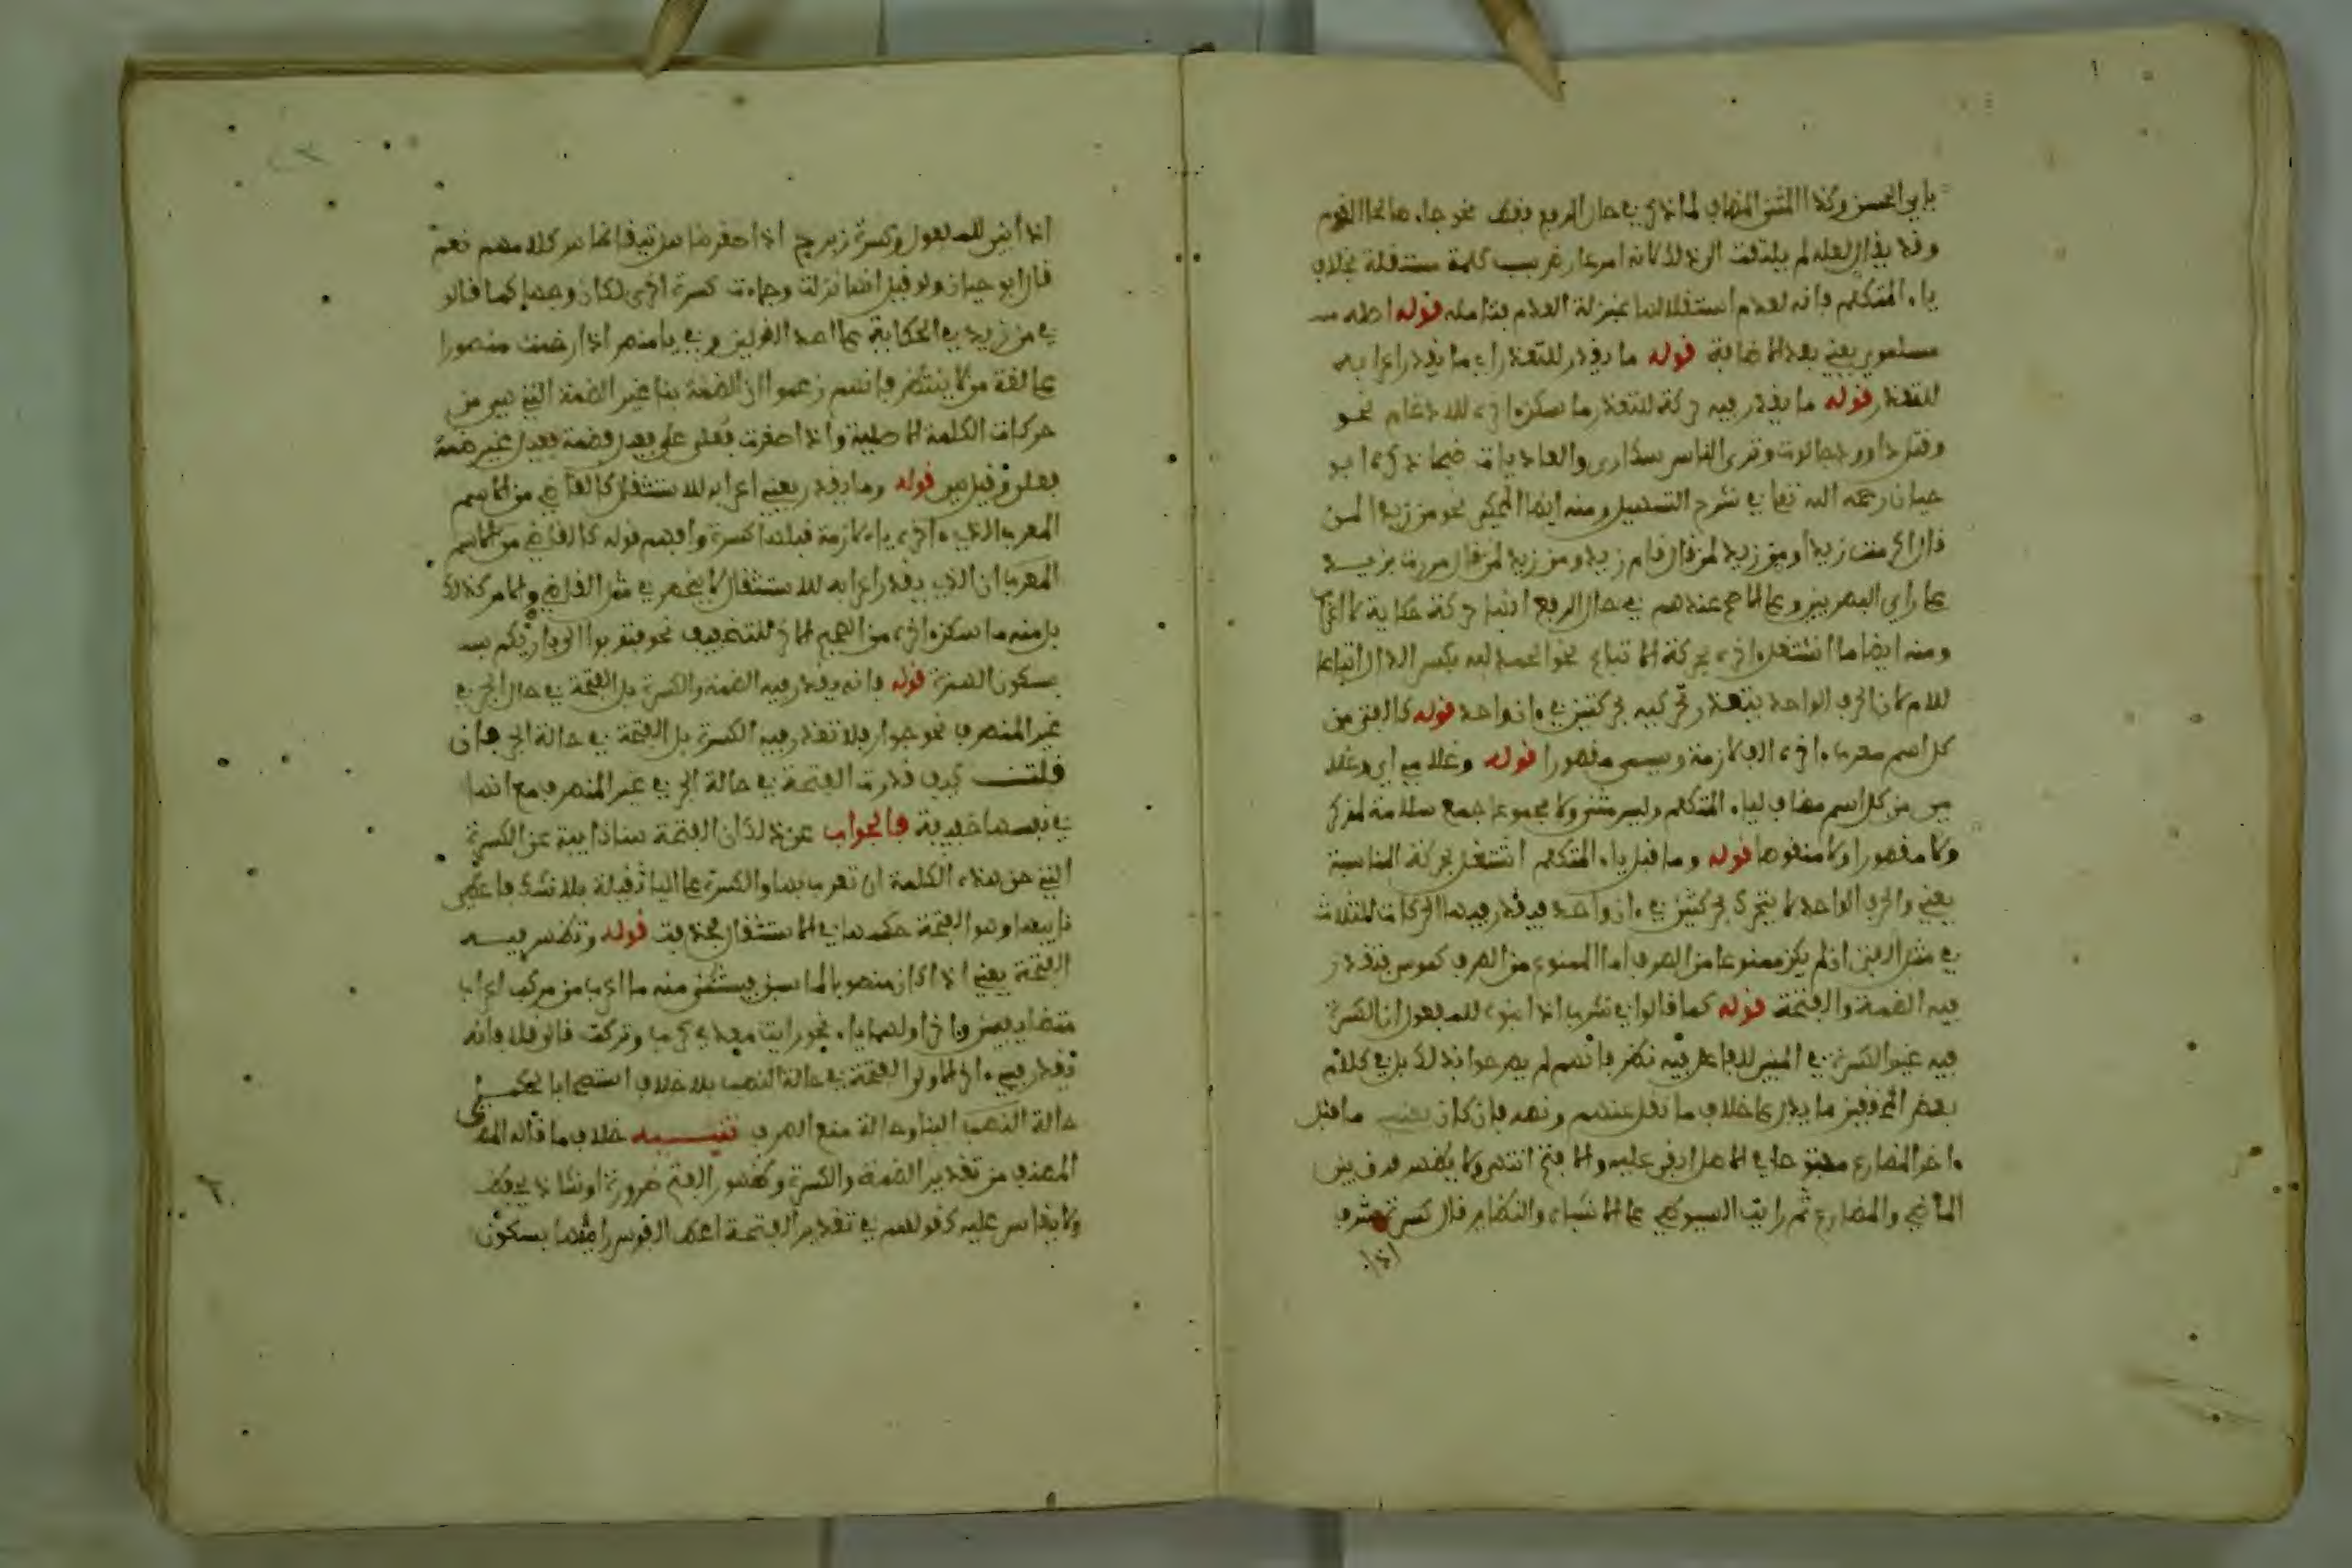 بابي الحسن وكذا المثنى المضاف لما ذكر في حال الرفع فقط نحو جاء صالحا القوم
وقد يقال لعله لم يلتفت الى ذلك لانه امر عارض بسبب كلمة مستقلة بخلاف
ياء المتكلم فانه لعدم استقلالها بمنزلة العدم فتامله قوله اصله
مسلموي يعني بعد الاضافة قوله ما يقدر للتعذر اي ما يقدر اعرابه
للتعذر قوله ما يقدر فيه حركة للتعذر ما سكن ءاخره للادغام نحو
وقتل داوود جالوت وترى الناس سكارى والعاديات ضبحا ذكره ابو
حيان رحمه الله تعا في شرح التسهيل ومنه ايضا المحكي نحو من زيدا لمن
قال اكرمت زيدا ومن زيد لمن قال قام زيد ومن زيد لمن قال مررت بزيد
على راي البصريين وعلى الاصح عندهم في حال الرفع انها حركة حكاية لا اعراب
ومنه ايضا ما اشتغل ءاخره بحركة الاتباع نحو الحمد لله بكسر الدال اتباعا
للام لان الحرف الواحد يتعذر تحركيه بحركتين في ءان واحد قوله كالفتى من
كل اسم معرب ءاخره الف لازمة ويسمى مقصورا قوله وغلامي اي وغلا
مي من كل اسم مضاف لياء المتكلم وليس مثنى ولا مجموعا جمع سلامة لمذكر
ولا مقصورا ولا منقوصا قوله وما قبل ياء المتكلم اشتغل بحركة المناسبة
يعني والحرف الواحد لا يتحرك بحركتين في ءان واحد فيقدر فيهما الحركات الثلاث
في مثل الفتى ان لم يكن ممنوعا من الصرف اما الممنوع من الصرف كموسى فتقدر
فيه الضمة والفتحة قوله كما قالوا في شرب اذا بنوه للمفعول ان الكسرة
فيه غير الكسرة في المبني للفاعل فيه نظر فانهم لم يصرحوا بذلك بل في كلام
بعض المحققين ما يدل على خلاف ما نقل عنهم ونصه فان كان ما قبل
ءاخر المضارع مفتوحا في الاصل ابقي عليه والا فتح انتهى ولا يظهر فرق بين
الماضي والمضارع ثم رايت السيوطي في الاشباه والنظاير قال كسرة شرب
اذا
اذا بني للمفعول وكسرة زبرج اذا صغرتها فانها من كلامهم نعم
قال ابو حيان ولو قيل انها زالت وجاءت كسرة اخرى لكان وجها كما قالو
في من زيد في الحكاية على احد القولين وفي يا منص اذا رخمت منصورا
على لغة من لا ينتظر فانهم زعموا ان الضمة بنا غير الضمة التي هي من
حركات الكلمة الاصلية واذا صغرت فعل على فعيل فضمة فعيل غير ضمة
فعل وقيل هي قوله وما يقدر يعني اعرابه للاستثقال كالقاضي من الاسم
المعرب الذي ءاخره ياء لازمة قبلها كسرة وافهم قوله كالقاضي من الاسم
المعرب ان الذي يقدر اعرابه للاستثقال لا ينحصر في مثل القاضي والامر كذلك
بل منه ما سكن ءاخره من الصحيح الاخر للتخفيف نحو فتوبوا الى بارئكم
بسكون الهمزة قوله فانه يقدر فيه الضمة والكسرة بل الفتحة في حال الجر في
غير المنصرف نحو جوار فلا تقدر فيه الكسرة بل الفتحة في حالة الجر فان
قلت كيف قدرت الفتحة في حالة الجر في غير المنصرف مع انها
في نفسها خفيفة فالجواب عن ذلك ان الفتحة هنا نايبة عن الكسرة
التي حق هذه الكلمة ان تعرب بها والكسرة على اليا ثقيلة بلا شك فاعطي
نايبها وهو الفتحة حكمها في الاستثقال فحذفت قوله وتظهر فيه
الفتحة يعني اذا كان منصوبا لما سبق يستثنى منه ما اعرب من مركب اعراب
متضايفين وءاخر اولهما ياء نحو رايت معدي كرب وتركت قالي قلا فانه
تقدر في ءاخر الاول الفتحة في حالة النصب بلا خلاف استصحابا لحكم
حالة النصب البنا وحالة منع الصرف تنبيه خلاف ما قاله المصنف
المصنف من تقدير الضمة والكسرة وظهور الفتح ضرورة او شاذ يحفظ
ولا يقاس عليه كقولهم في تقدير الفتحة اعط القوس راميها بسكون